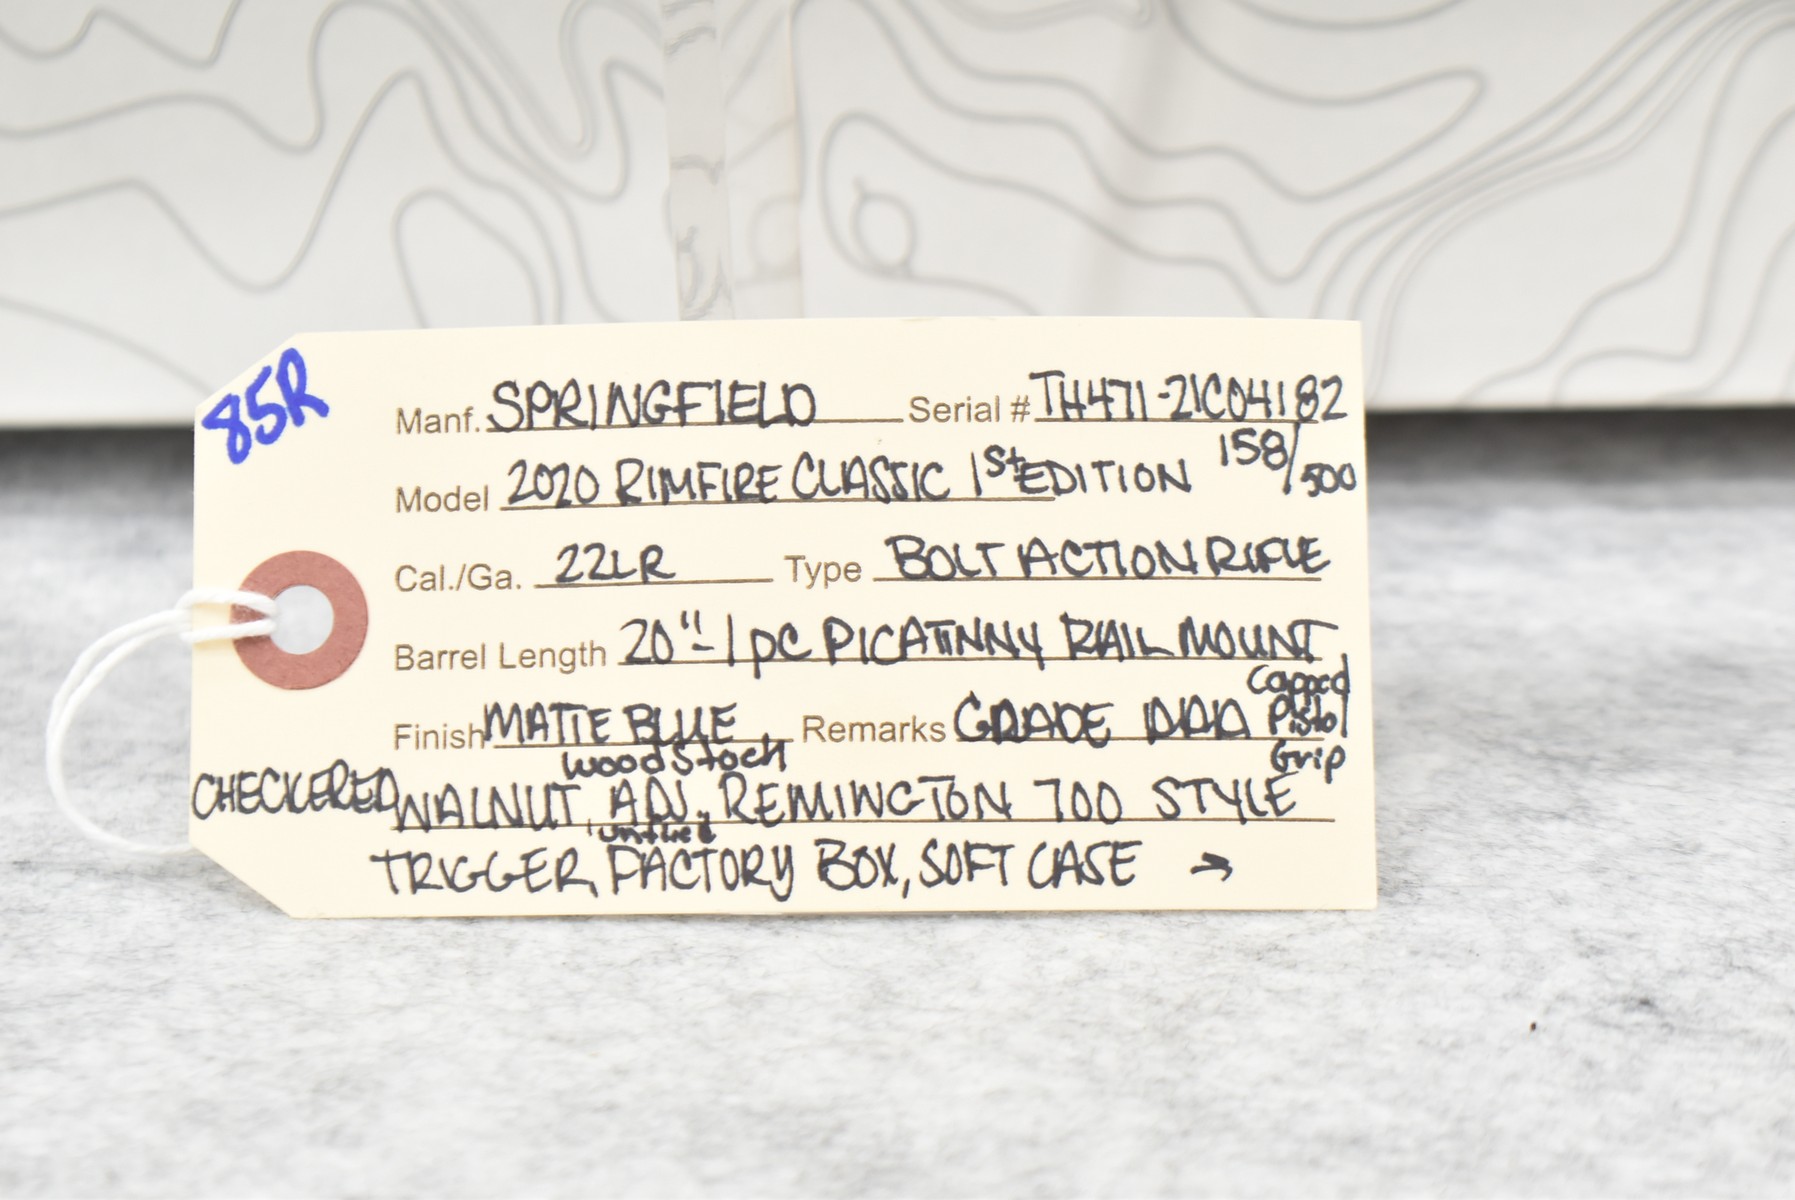 85R
Manf. SPRINGFIELD Serial # TH471-21C04182
Model 2020 RIMFIRE CLASSIC 1st EDITION 158/500
Cal./Ga. 22LR Type BOLT ACTION RIFLE
Barrel Length 20"-1pc PICATINNY RAIL MOUNT,
Finish MATTE BLUE, Remarks GRADE AAA Capped Pistol Grip
wood stock
CHECKERED WALNUT, ADJ. REMINGTON 700 STYLE
untied
TRIGGER, FACTORY BOX, SOFT CASE →